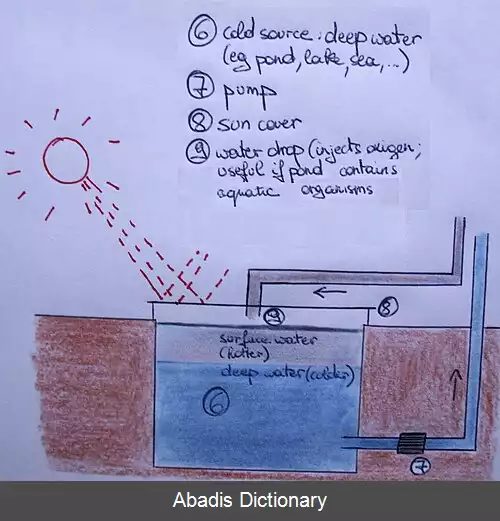 ⑥ cold source: deep water
(eg pond, lake, sea, ...)
⑦ pump
⑧ sun cover
⑨ water drop (injects oxigen;
useful if pond contains
aquatic organisms
⑧
⑨
surface water
(hotter)
deep water (colder)
⑥
⑦
Abadis Dictionary